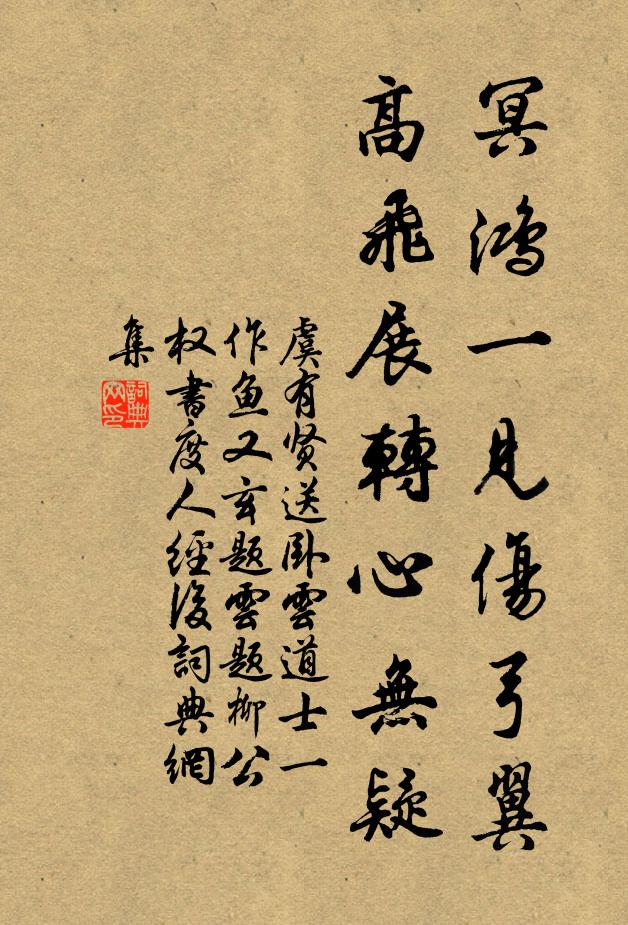 冥鴻一見傷弓翼
高飛展轉心無疑
虞有贤送卧雲道士一
作鱼又玄題雲題柳公
权書度人經後詞典網
集
詞典網印